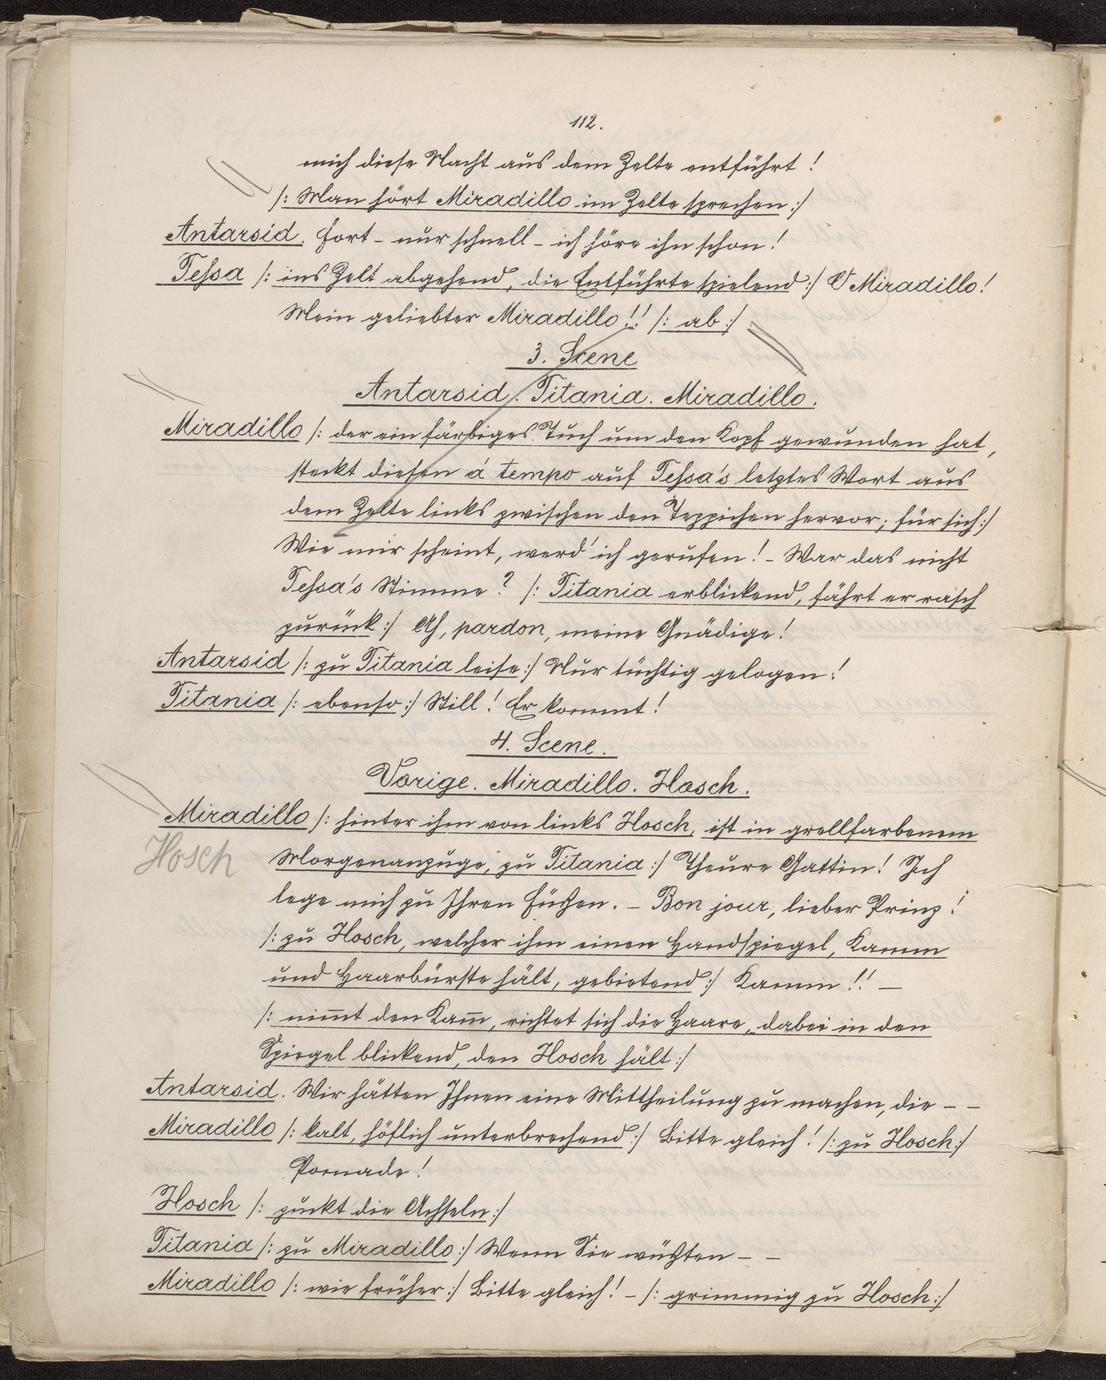 112.
mich diese Nacht aus dem Zelte entführt!
/: Man hört Miradillo im Zelte sprechen :/
Antarsid. Fort – nur schnell – ich höre ihn schon!
Tessa /: ins Zelt abgehend, die Entführte spielend :/ O Miradillo!
Mein geliebter Miradillo!! /: ab :/
3. Scene
Antarsid. Titania. Miradillo.
Miradillo /: der ein färbiges Tuch um den Kopf gewunden hat,
steckt diesen á tempo auf Tessa's letztes Wort aus
dem Zelte links zwischen den Teppichen hervor; für sich :/
Wie mir scheint, werd' ich gerufen! – War das nicht
Tessa's Stimme? /: Titania erblickend, fährt er rasch
zurück :/ Ah, pardon, meine Gnädige!
Antarsid /: zu Titania leise :/ Nur tüchtig gelogen!
Titania /: ebenso :/ Still! Er kommt!
4. Scene.
Vorige. Miradillo. Hosch.
Miradillo /: hinter ihm von links Hosch, ist in grellfarbenem
Hosch
Morgenanzuge, zu Titania :/ Theure Gattin! Ich
lege mich zu Ihren Füßen. – Bon jour, lieber Prinz!
/: zu Hosch, welcher ihm einen Handspiegel, Kamm
und Haarbürste hält, gebietend :/ Kamm!! –
/: nim̅t den Kam̅, richtet sich die Haare, dabei in den
Spiegel blickend, den Hosch hält :/
Antarsid. Wir hätten Ihnen eine Mittheilung zu machen, die – –
Miradillo /: kalt, höflich unterbrechend :/ Bitte gleich! /: zu Hosch :/
Pomade!
Hosch /: zuckt die Achseln :/
Titania /: zu Miradillo :/ Wenn Sie wüßten – –
Miradillo /: wie früher :/ Bitte gleich! – /: grimmig zu Hosch :/